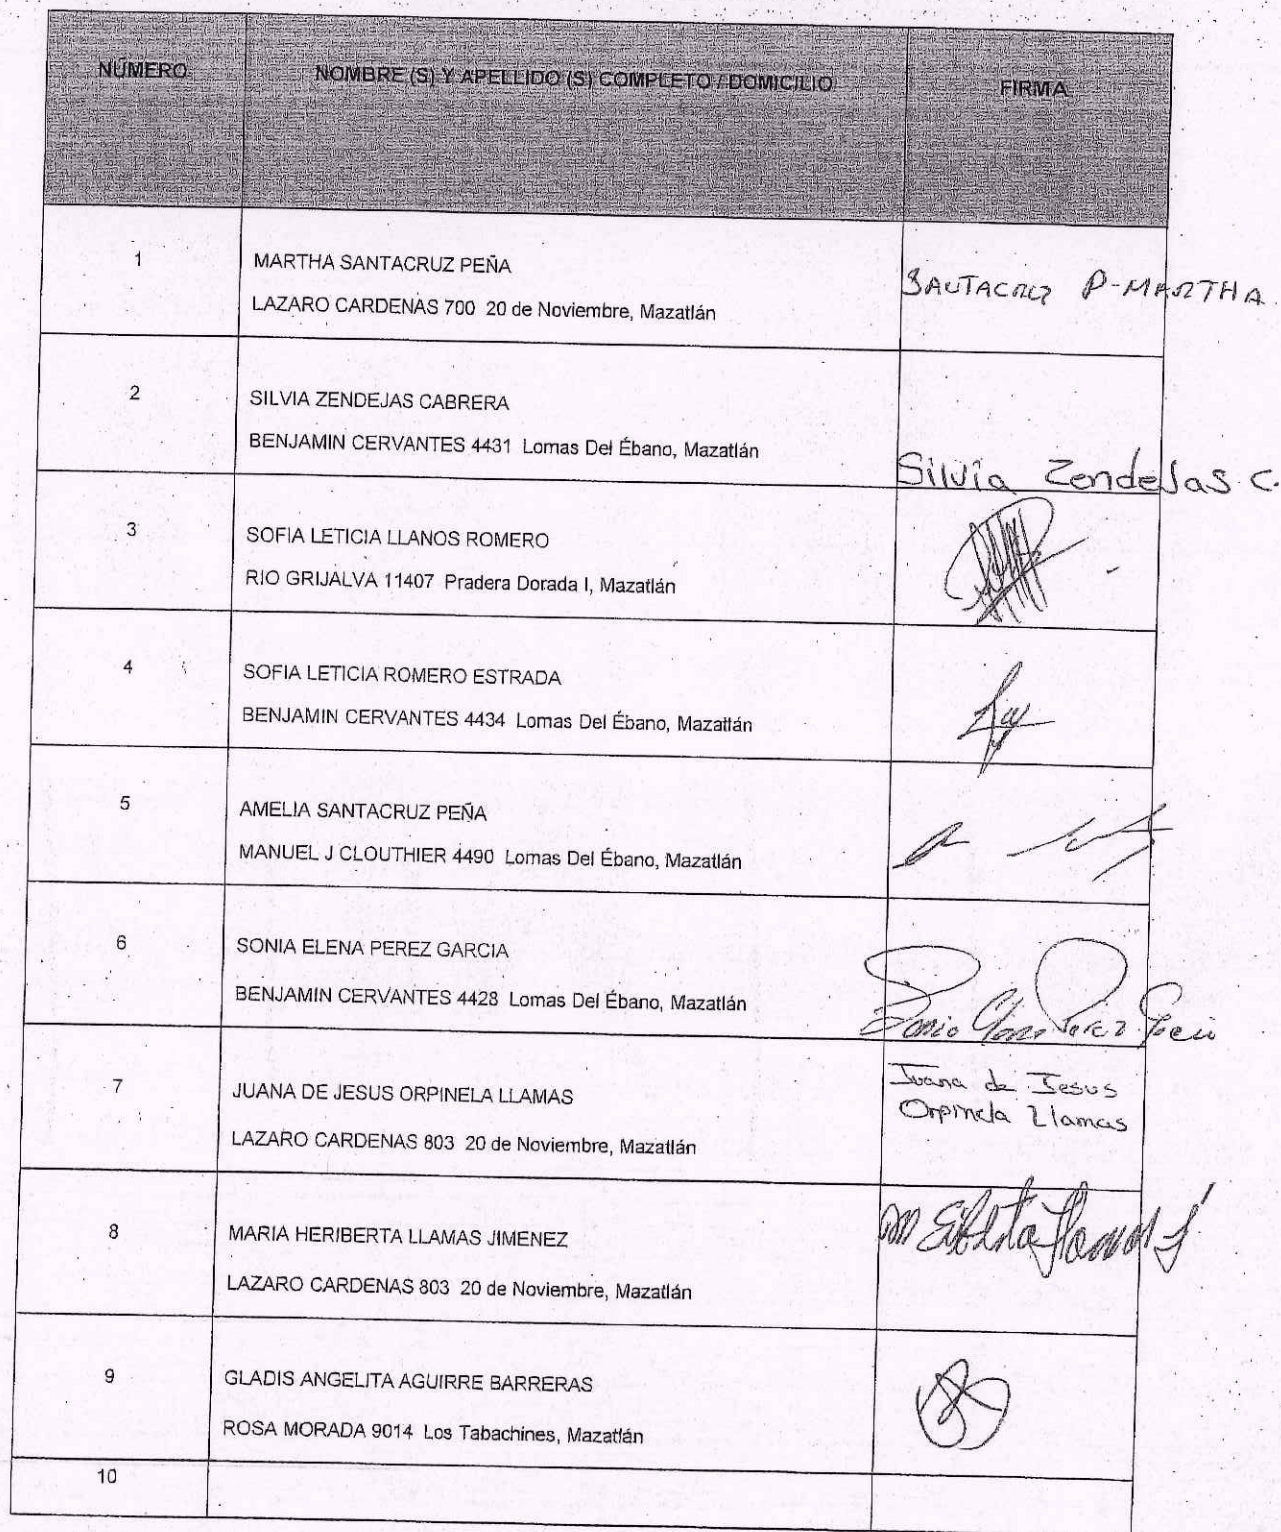 NÚMERO NOMBRE (S) Y APELLIDO (S) COMPLETO / DOMICILIO FIRMA
1 MARTHA SANTACRUZ PEÑA
LAZARO CARDENAS 700 20 de Noviembre, Mazatlán
SAUTACRUZ P-MARTHA
2 SILVIA ZENDEJAS CABRERA
BENJAMIN CERVANTES 4431 Lomas Del Ébano, Mazatlán
Silvia Zendejas C.
3 SOFIA LETICIA LLANOS ROMERO
RIO GRIJALVA 11407 Pradera Dorada I, Mazatlán
4 SOFIA LETICIA ROMERO ESTRADA
BENJAMIN CERVANTES 4434 Lomas Del Ébano, Mazatlán
5 AMELIA SANTACRUZ PEÑA
MANUEL J CLOUTHIER 4490 Lomas Del Ébano, Mazatlán
6 SONIA ELENA PEREZ GARCIA
BENJAMIN CERVANTES 4428 Lomas Del Ébano, Mazatlán
Sonia Elena Perez Garcia
7 JUANA DE JESUS ORPINELA LLAMAS
LAZARO CARDENAS 803 20 de Noviembre, Mazatlán
Juana de Jesus
Orpinela Llamas
8 MARIA HERIBERTA LLAMAS JIMENEZ
LAZARO CARDENAS 803 20 de Noviembre, Mazatlán
9 GLADIS ANGELITA AGUIRRE BARRERAS
ROSA MORADA 9014 Los Tabachines, Mazatlán
10